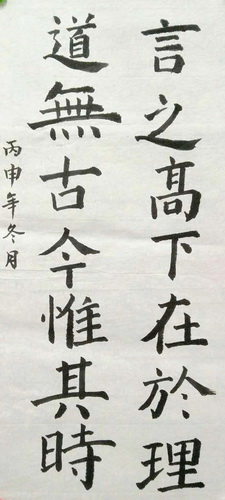 言之髙下在於理
道無古今惟其時
丙申年冬月